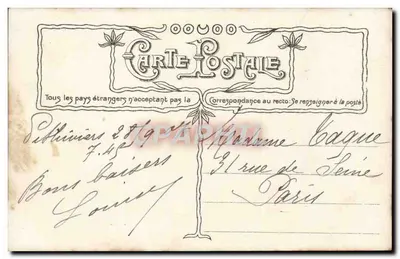 CARTE POSTALE
Tous les pays étrangers n'acceptant pas la Correspondance au recto: Se renseigner à la poste
Pithiviers 25/9
7.40
Bons baisers
Louise
Madame Taque
31 rue de Seine
Paris